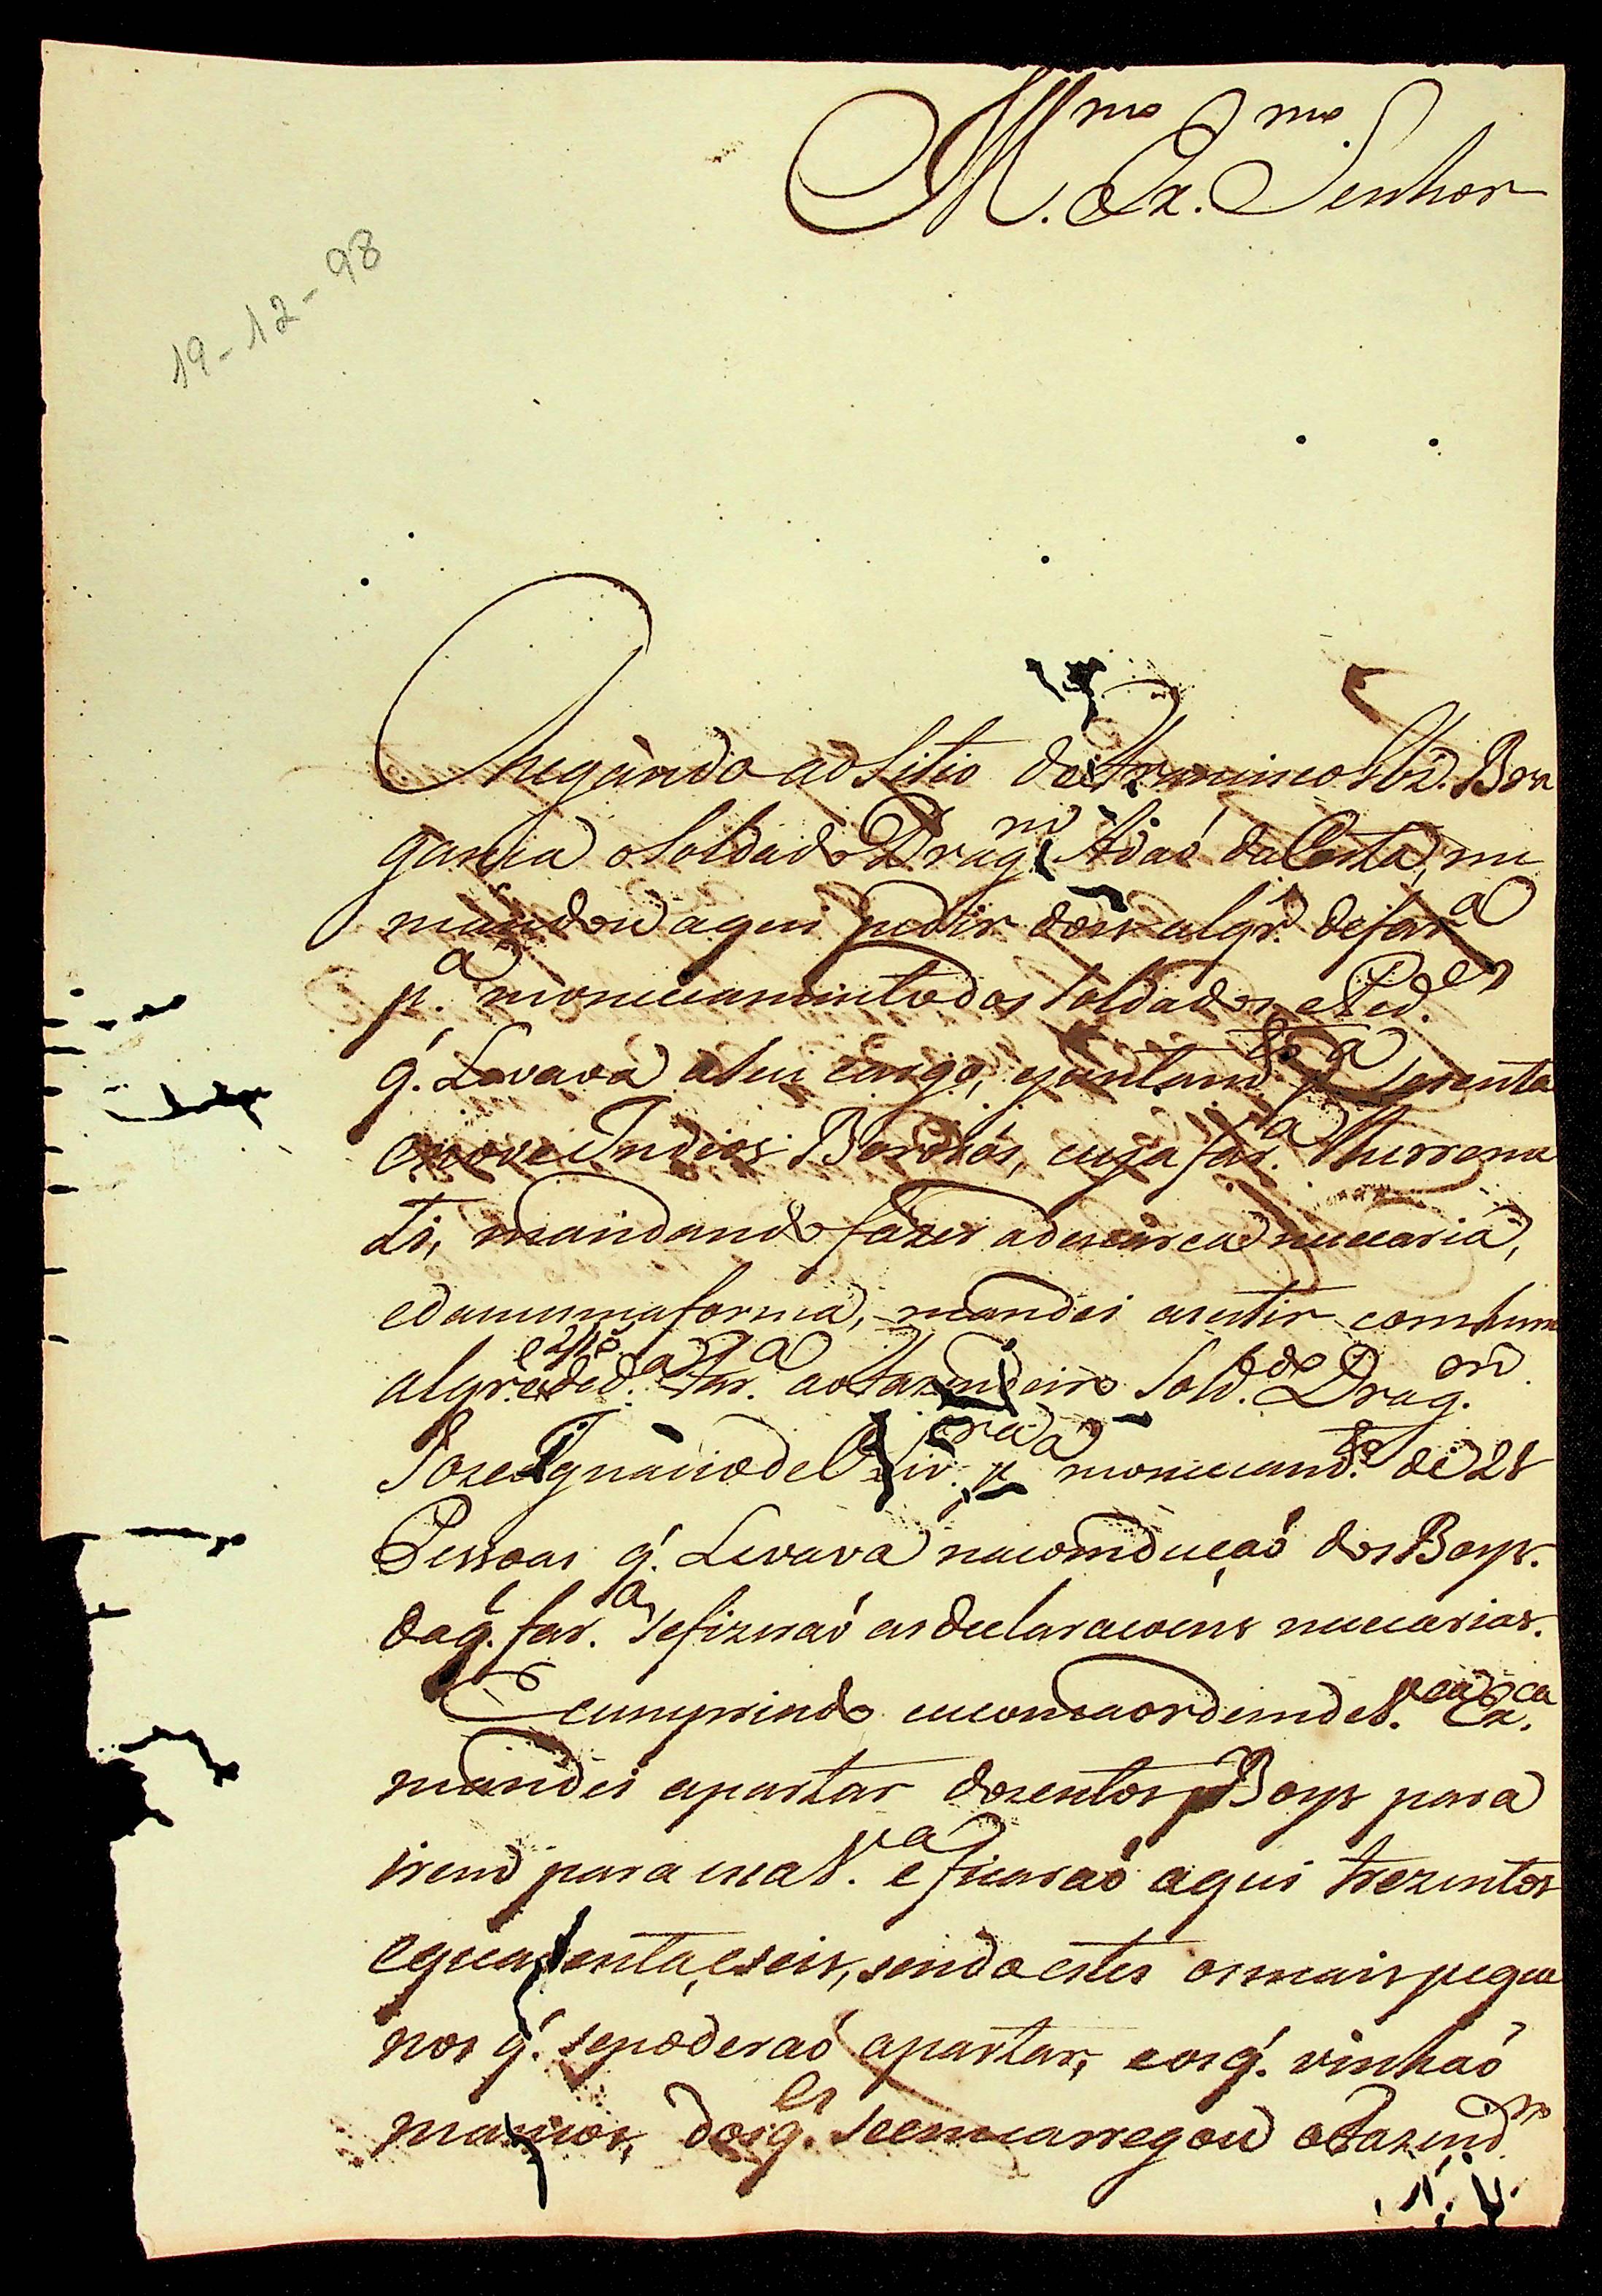 Ill.mo Ex.mo Senhor
19-12-98
Chegando ao Sitio de Francisco Roiz. Bra
gansa o Soldado Drag.m Adaó da Costa, me
mandou aqui pedir dois alqr.s de far.a
p.a moniciamento dos Soldados, e Ped.es
q'. Levava a seu cargo, e juntam.te p.a secenta
e nove Indios Bororós, cuja far.a lhe reme
ti, mandando fazer a decLareaçaó neccaria,
e da mesma forma, mandei asestir com hum
alqre e 1/2 de far.a ao Fazendeiro Sold.do Drag.m
Joze Ignacio de Oliv.ra p.a moniciam.to de 28
Pessoas q'. Levava na comduçaó dos Boys.
da q.l far.a se fizeraó as declaracoens neccarias.
E cumprindo eu com a ordem de V. Ex.ca
mandei apartar dozentos Boys para
irem para essa V.a e ficaraó aqui trezentos
e quarenta, e seis, sendo estes os mais peque
nos q'. se poderaó apartar, e os q'. vinhaó
mancos, dos q.es se emcarregou o Fazend.ro